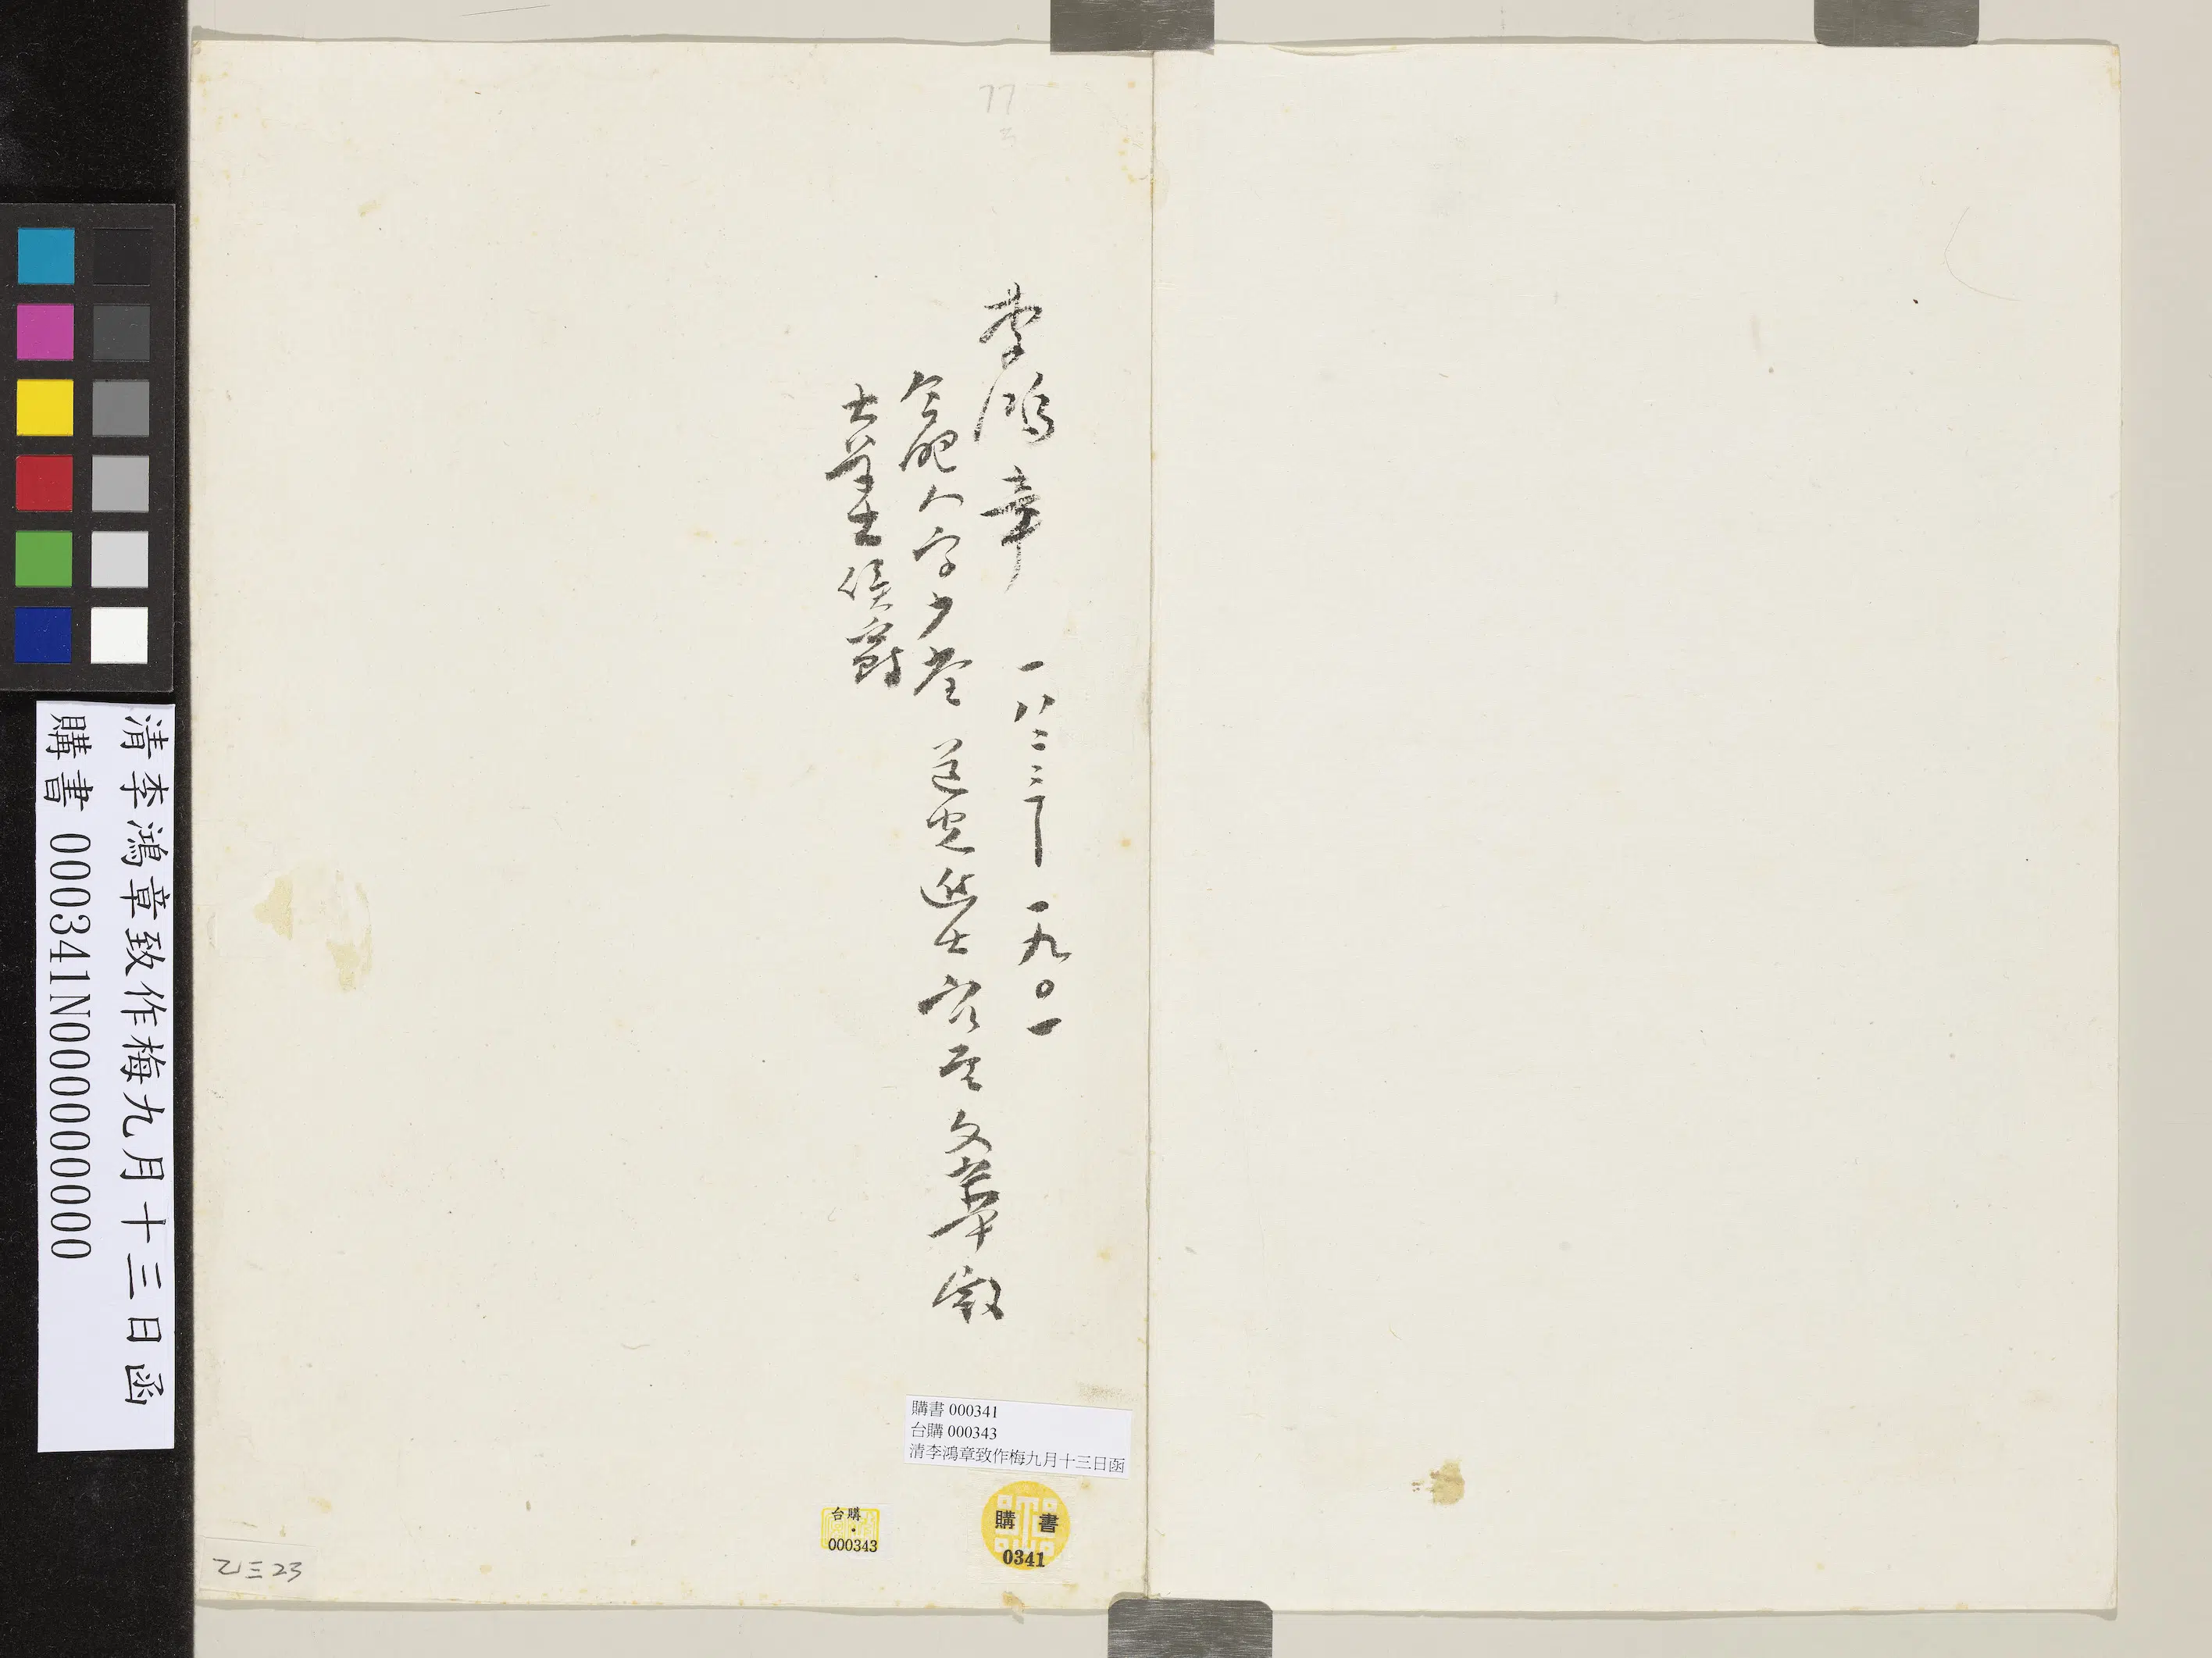 77
三
李鴻章 一八二三—一九〇一
合肥人字少荃 道光進士 官至文華殿
大學士 侯爵
購書 000341
台購 000343
清李鴻章致作梅九月十三日函
購書
0341
台購
000343
乙三23
清李鴻章致作梅九月十三日函
購書 000341N000000000